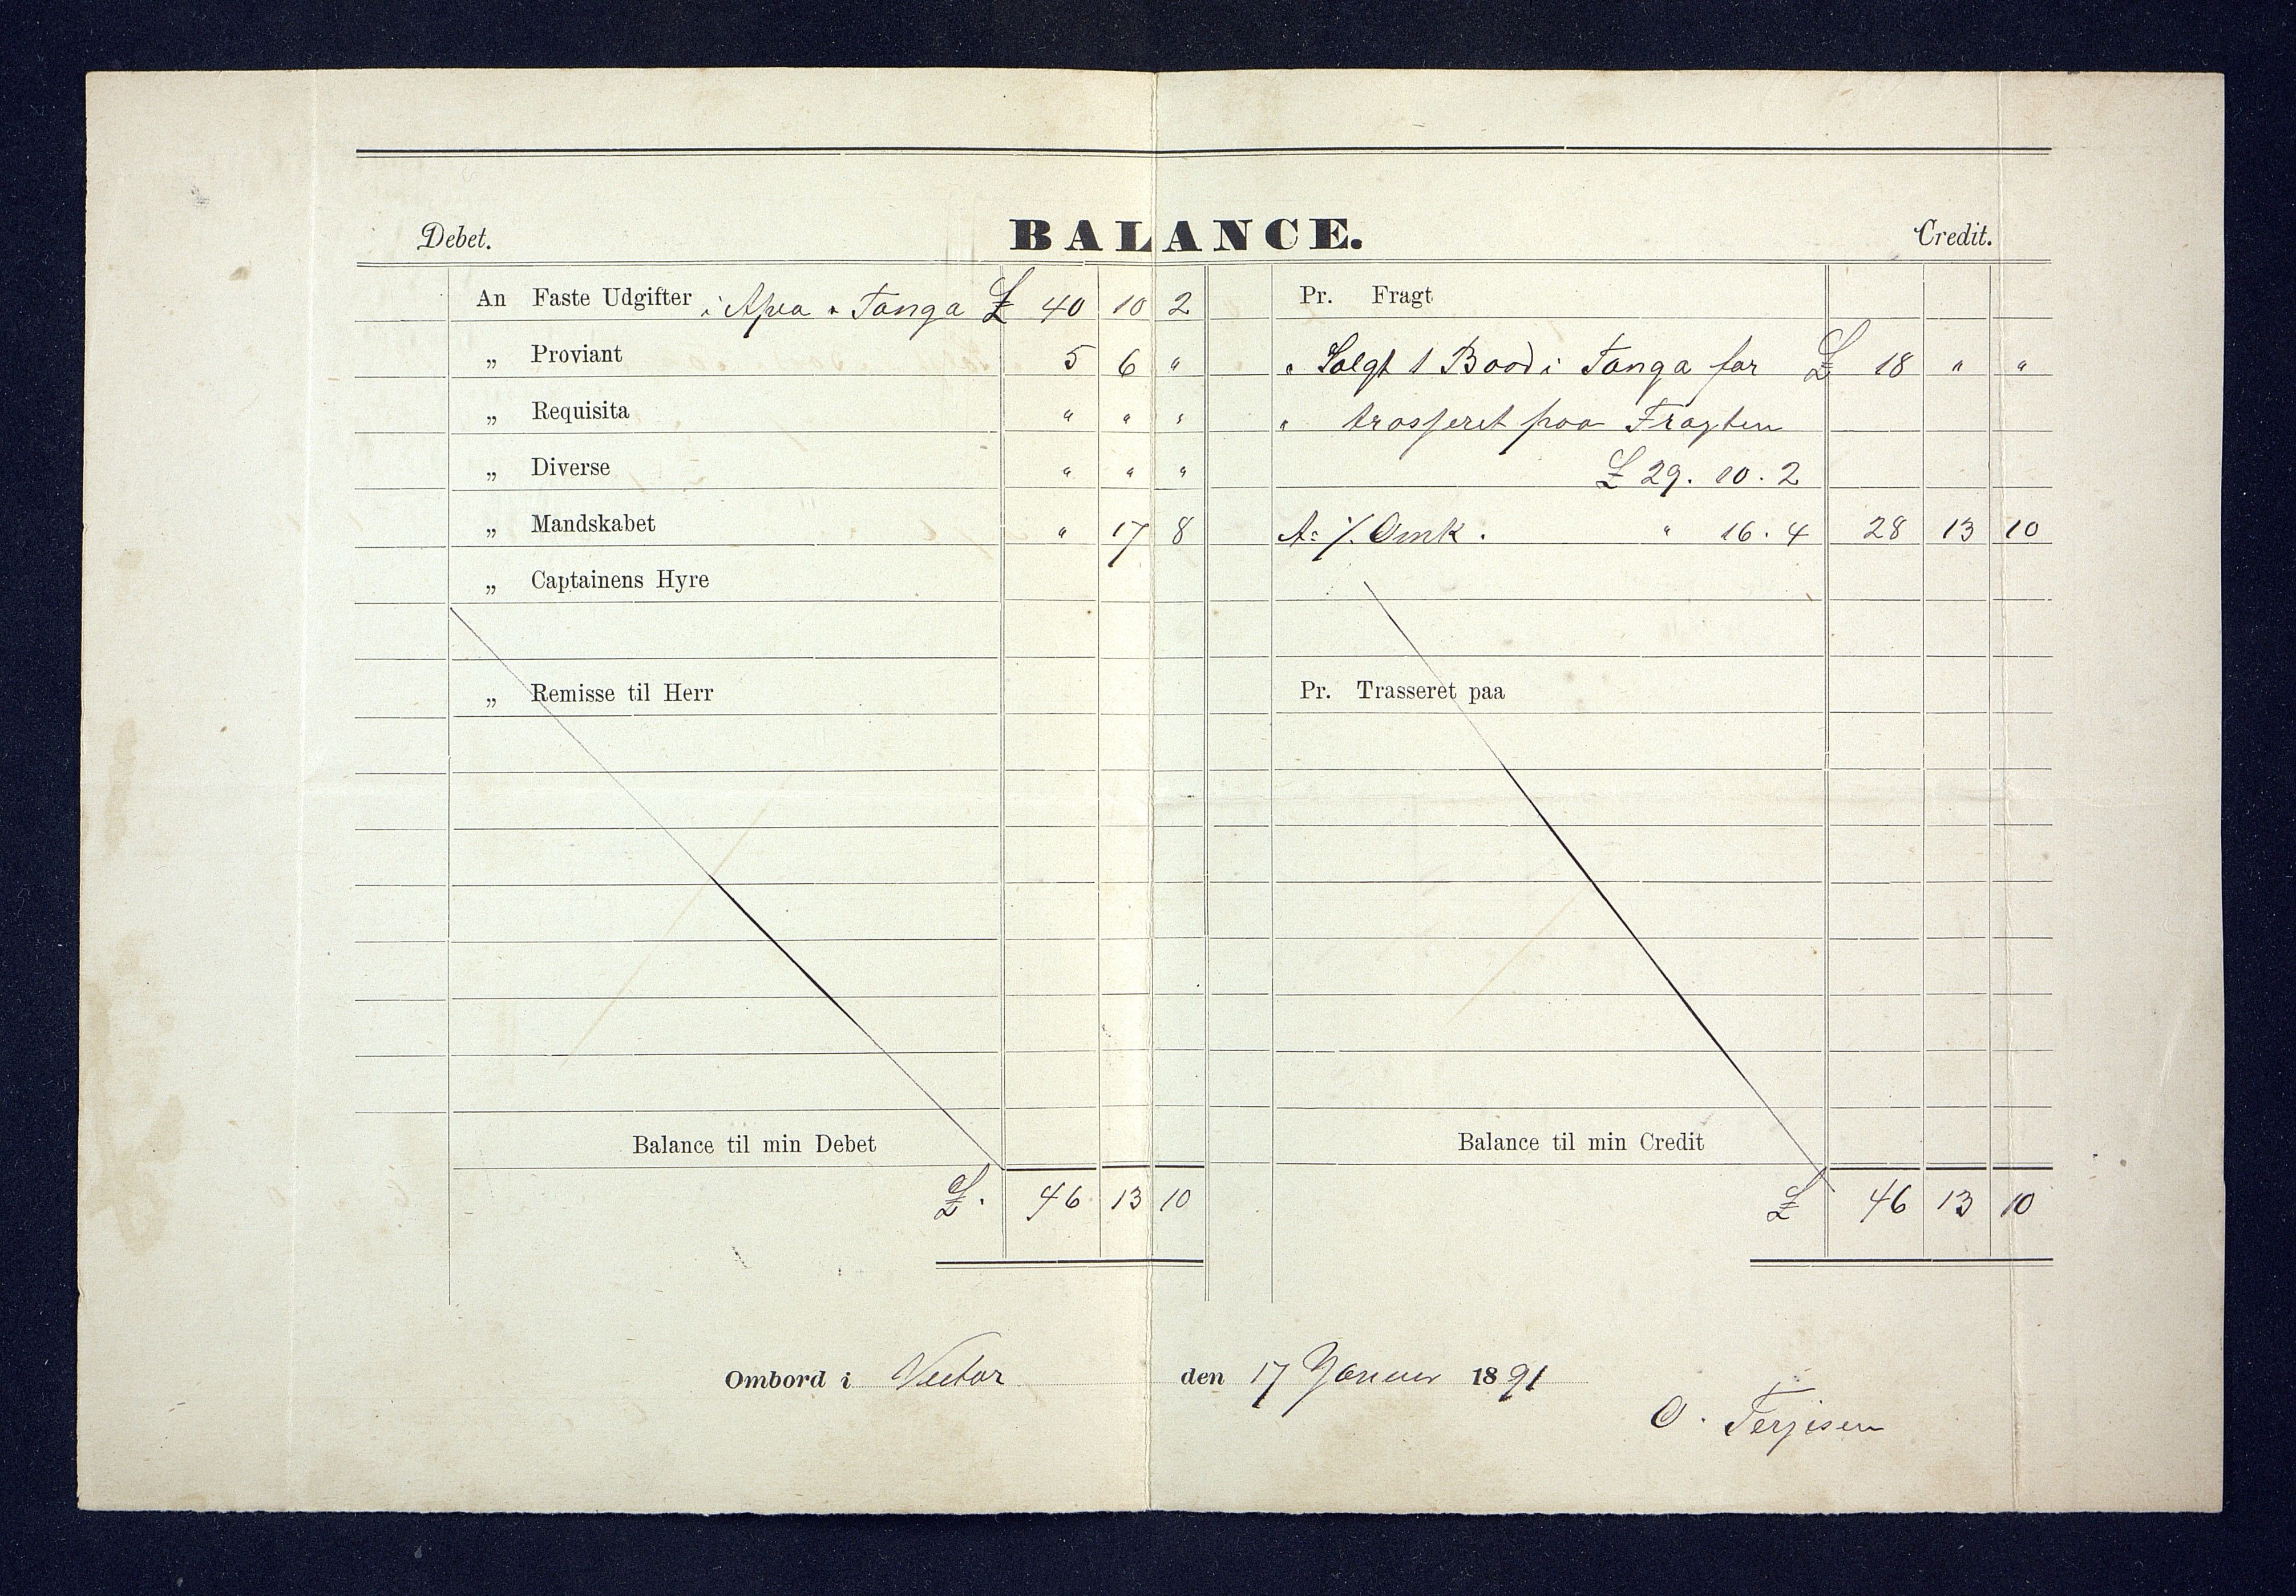 Debet. BALANCE. Credit.
An Faste Udgifter i Apia & Tonga £ 40 10 2
„ Proviant 5 6 "
„ Requisita " " "
„ Diverse " " "
„ Mandskabet " 17 8
„ Captainens Hyre
„ Remisse til Herr
Balance til min Debet
£. 46 13 10
Pr. Fragt
" Solgt 1 Baad i Tonga for £ 18 " "
" trasseret paa Fragten
£ 29. 10. 2
÷ Omk. " 16. 4 28 13 10
Pr. Trasseret paa
Balance til min Credit
£ 46 13 10
Ombord i Vector den 17 Januar 1891
O. Terjesen